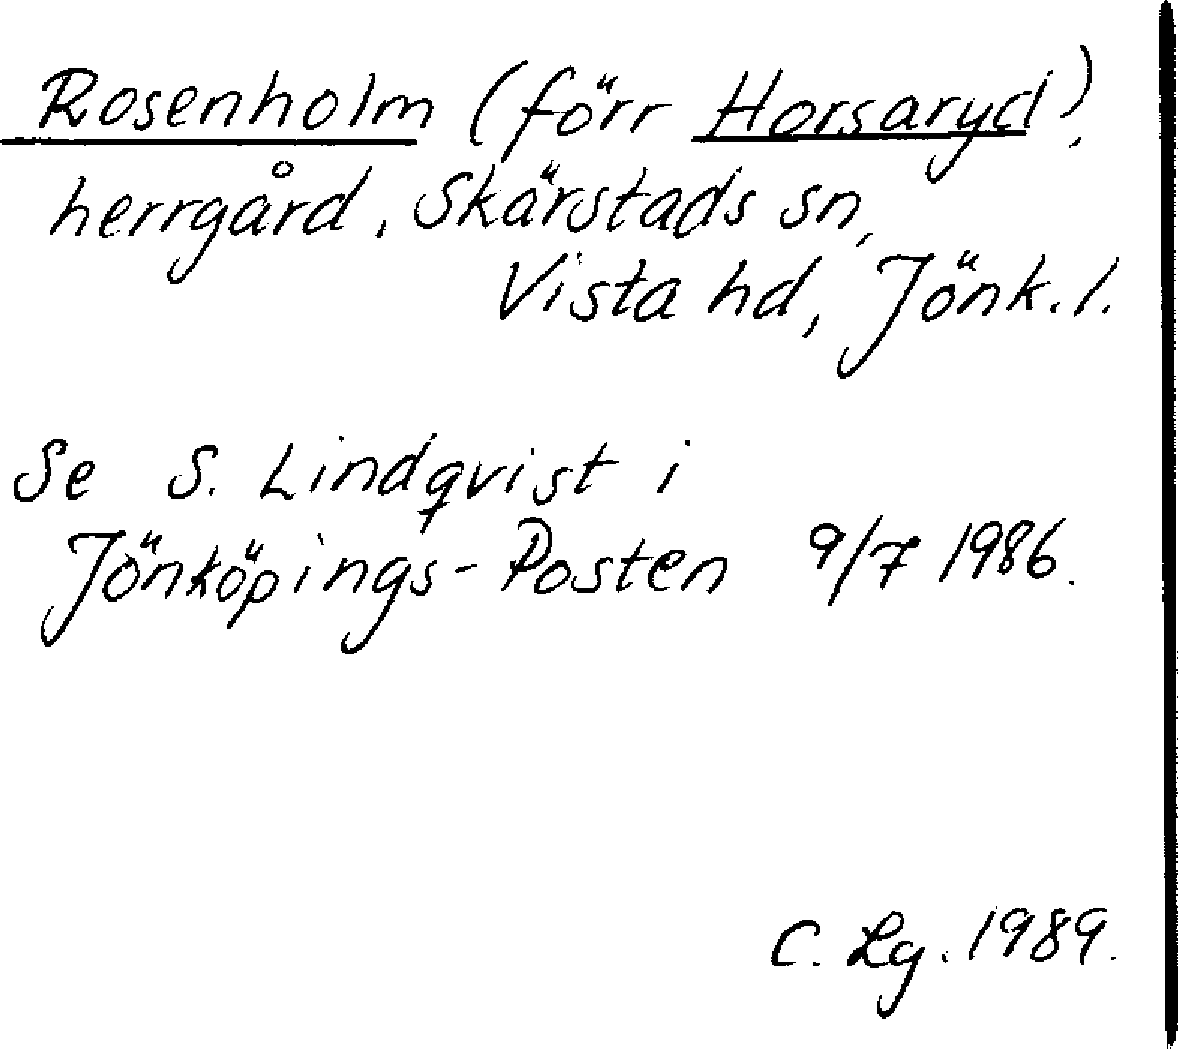 Rosenholm (förr Horsaryd),
herrgård, Skärstads sn,
Vista hd, Jönk. l.
Se S. Lindqvist i
Jönköpings-Posten 9/7 1986.
C. Lg. 1989.